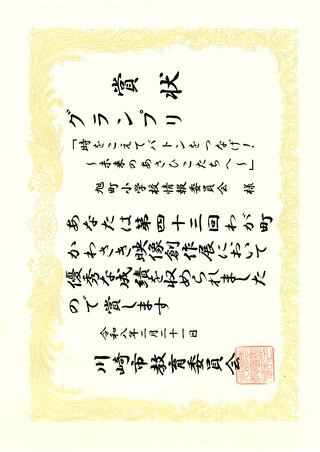 賞状
グランプリ
「時をこえてバトンをつなげ！
～未来のあさひこたちへ～」
旭町小学校情報委員会 様
あなたは第四十三回わが町
かわさき映像創作展において
優秀な成績を収められました
ので賞します
令和八年二月二十一日
川崎市教育委員会